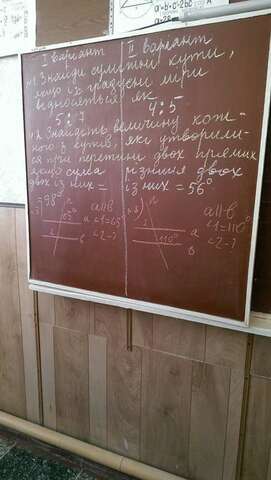 I варіант II варіант
№1. Знайди суміжні кути,
якщо їх градусні міри
відносяться як
5 : 7 4 : 5
№2. Знайдіть величину кож-
ного з кутів, які утворили-
ся при перетині двох прямих
якщо сума різниця двох
двох із них = із них = 56°
98°
65° a a||b ∠1=65° ∠2-?
2 в
№3) 1 a a||b ∠1=110° ∠2-?
110° в